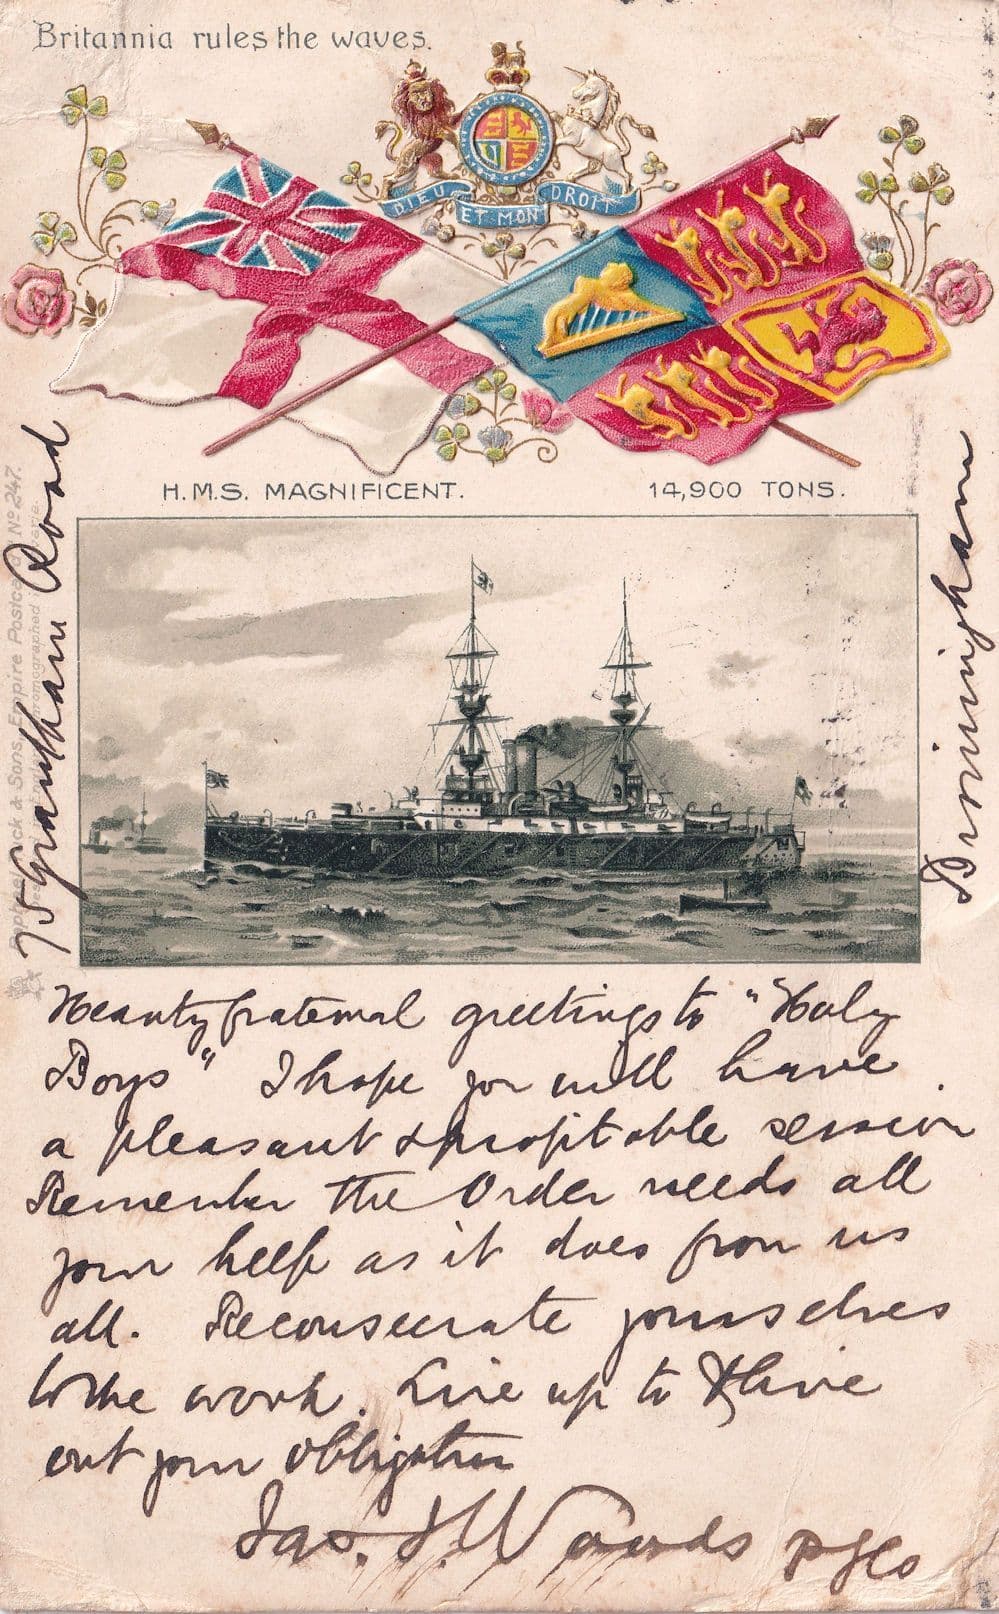 Britannia rules the waves.
DIEU ET MON DROIT
H.M.S. MAGNIFICENT. 14,900 TONS.
Raphael Tuck & Sons, Empire Postcard Nº 247.
Grantham Road
Birmingham
Hearty fraternal greetings to "Holy
Boys" I hope you will have
a pleasant & profitable session.
Remember the Order needs all
your help as it does from us
all. Reconsecrate yourselves
to the work. Live up to & live
out your obligation
Jas. J. Woods